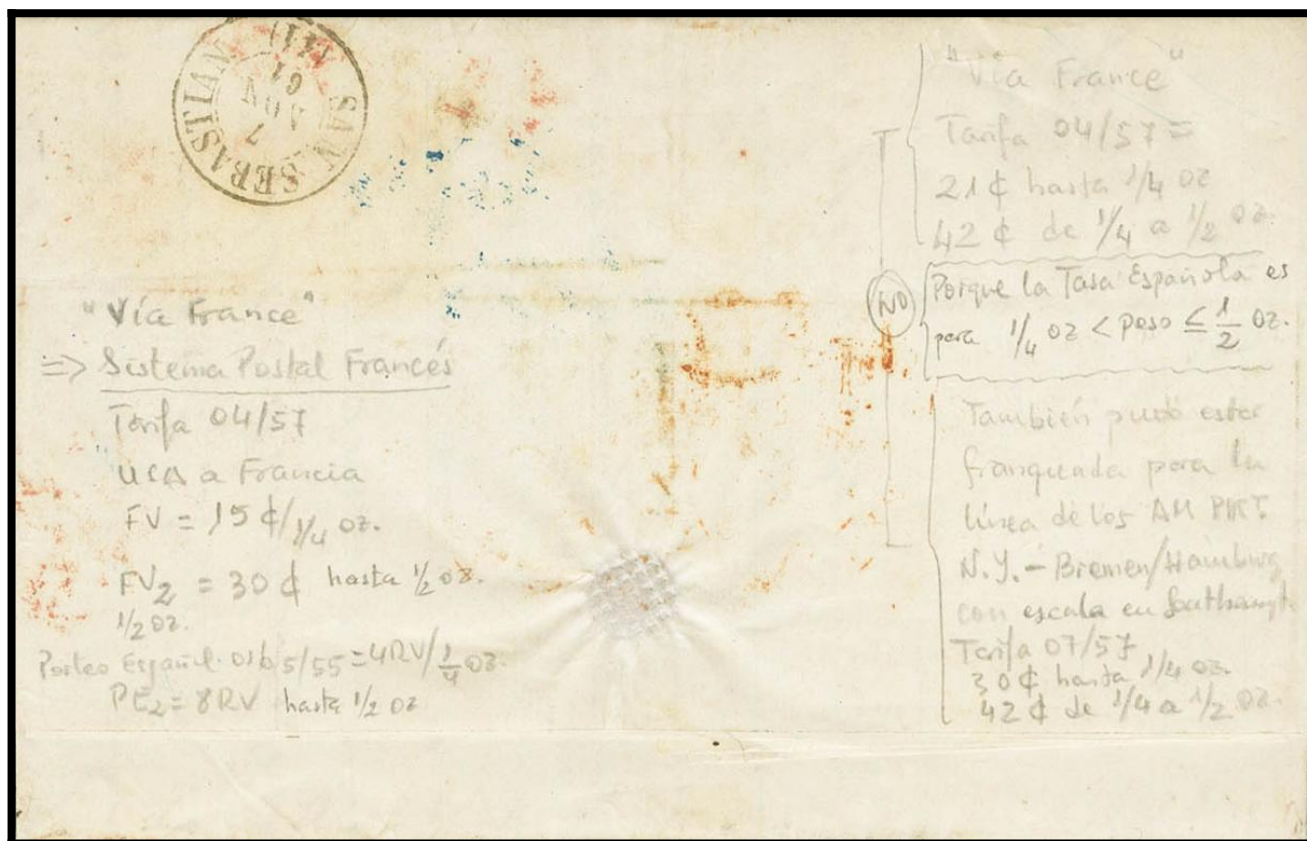 SAN SEBASTIAN
7
NOV
61
"Vía France"
=> Sistema Postal Francés
Tarifa 04/57
USA a Francia
FV = 15 ¢/1/4 oz.
FV2 = 30 ¢ hasta 1/2 oz.
1/2 oz.
Porteo Español 5/55 = 4RV/1/4 oz.
PE2 = 8RV hasta 1/2 oz
"Vía France"
Tarifa 04/57 =
21 ¢ hasta 1/4 oz
42 ¢ de 1/4 a 1/2 oz.
NO
Porque la Tasa Española es
para 1/4 oz < peso ≤ 1/2 oz.
También pudo estar
franqueada para la
línea de los AM PKT.
N.Y. - Bremen/Hamburg
con escala en Southampt.
Tarifa 07/57
30 ¢ hasta 1/4 oz.
42 ¢ de 1/4 a 1/2 oz.